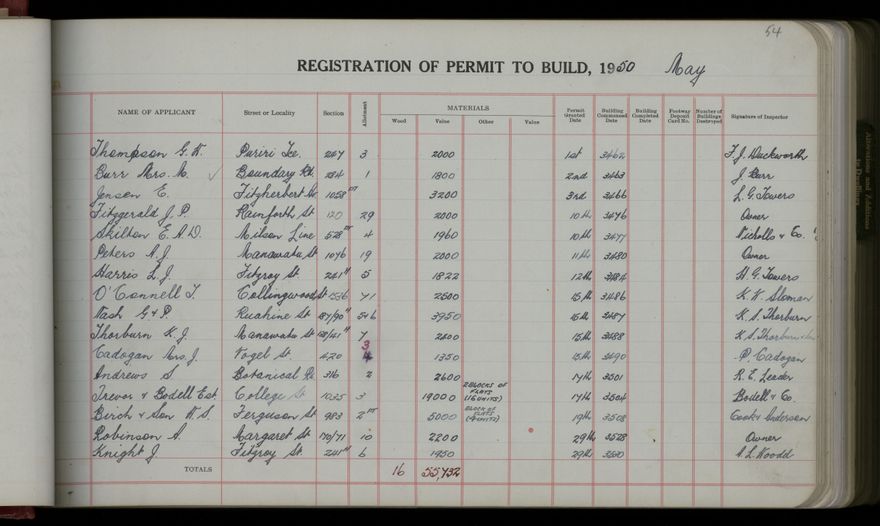 54
REGISTRATION OF PERMIT TO BUILD, 1950 May
NAME OF APPLICANT Street or Locality Section Allotment MATERIALS Wood Value Other Value Permit Granted Date Building Commenced Date Building Completed Date Footway Deposit Card No. Number of Buildings Destroyed Signature of Inspector
Thompson G. W. Puriri Tce. 247 3 2000 1st 3462 F. J. Duckworth
Burr Mrs. M. Boundary Rd. 1214 1 1800 2nd 3463 J Burr
Jensen E. Fitzherbert Av. 1058 3200 3rd 3466 L. G. Towers
Fitzgerald J. P. Rainforth St 120 29 2000 10th 3476 Owner
Skilton E. A. D. Milson Line 528 4 1960 10th 3477 Nicholls & Co.
Peters A. J. Manawatu St 1046 19 2000 11th 3480 Owner
Harris L. J. Fitzroy St 241 5 1822 12th 3484 H. G. Towers
O'Connell T. Collingwood St 1536 41 2500 15th 3486 K. W. Sleman
Nash G & P Ruahine St 5+6 3950 15th 3487 K. S. Thorburn
Thorburn K. J. Manawatu St 7 2600 15th 3488 K. S. Thorburn
Cadogan Mrs J. Vogel St 420 3 4 1350 15th 3490 P. Cadogan
Andrews S. Botanical Rd. 316 2 2600 17th 3501 R. E. Leader
Trevor & Bodell Est. College St 1025 3 19000 2 BLOCKS OF FLATS (16 UNITS) 17th 3504 Bodell & Co.
Birch & Son W. S. Ferguson St 983 2 5000 BLOCK OF FLATS (4 UNITS) 19th 3508 Cook & Anderson
Robinson A. Margaret St 170/71 10 2200 29th 3528 Owner
Knight J. Fitzroy St 241 6 1950 29th A. L. Woodd
TOTALS 16 55,732
Alterations and Additions to Dwellings